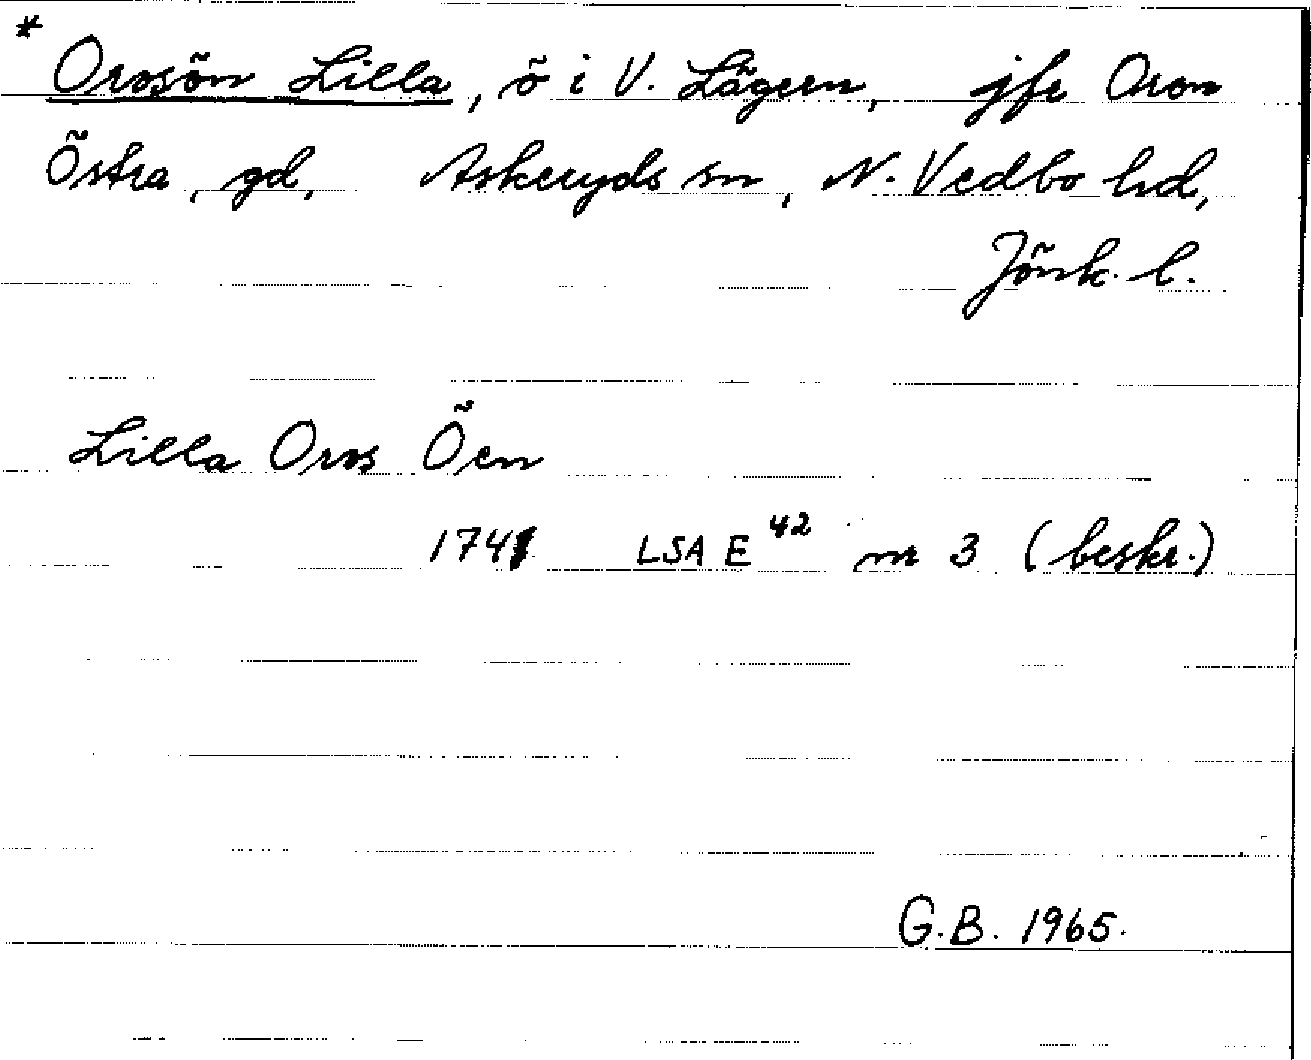 * Orosön Lilla, ö i V. Lägern, jfr Oron
Östra, gd, Askeryds sn, N. Vedbo hd,
Jönk. l.
Lilla Oros Öen
1741 LSA E 42 nr 3 (beskr.)
G.B. 1965.